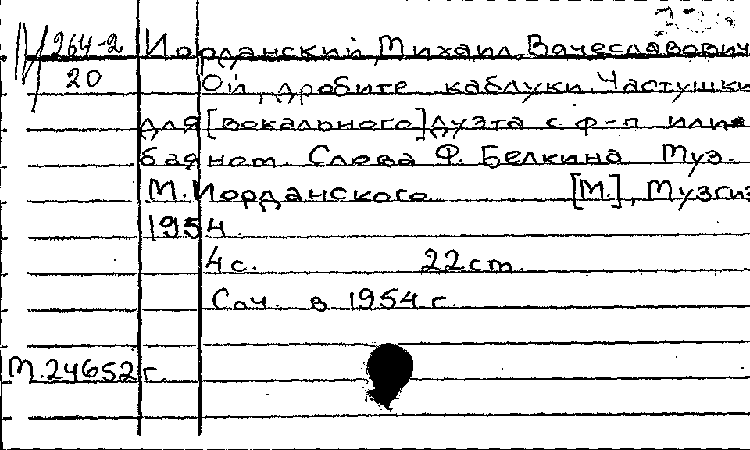 264-2 Иорданский, Михаил Вачеславович
20 Ой, дробите каблуки. Частушки
для [вокального] дуэта с ф-п или
баяном. Слова Ф. Белкина Муз.
М. Иорданского [М.], Музгиз
1954
4 с. 22 ст
Соч. в 1954 г.
М.24652 г.